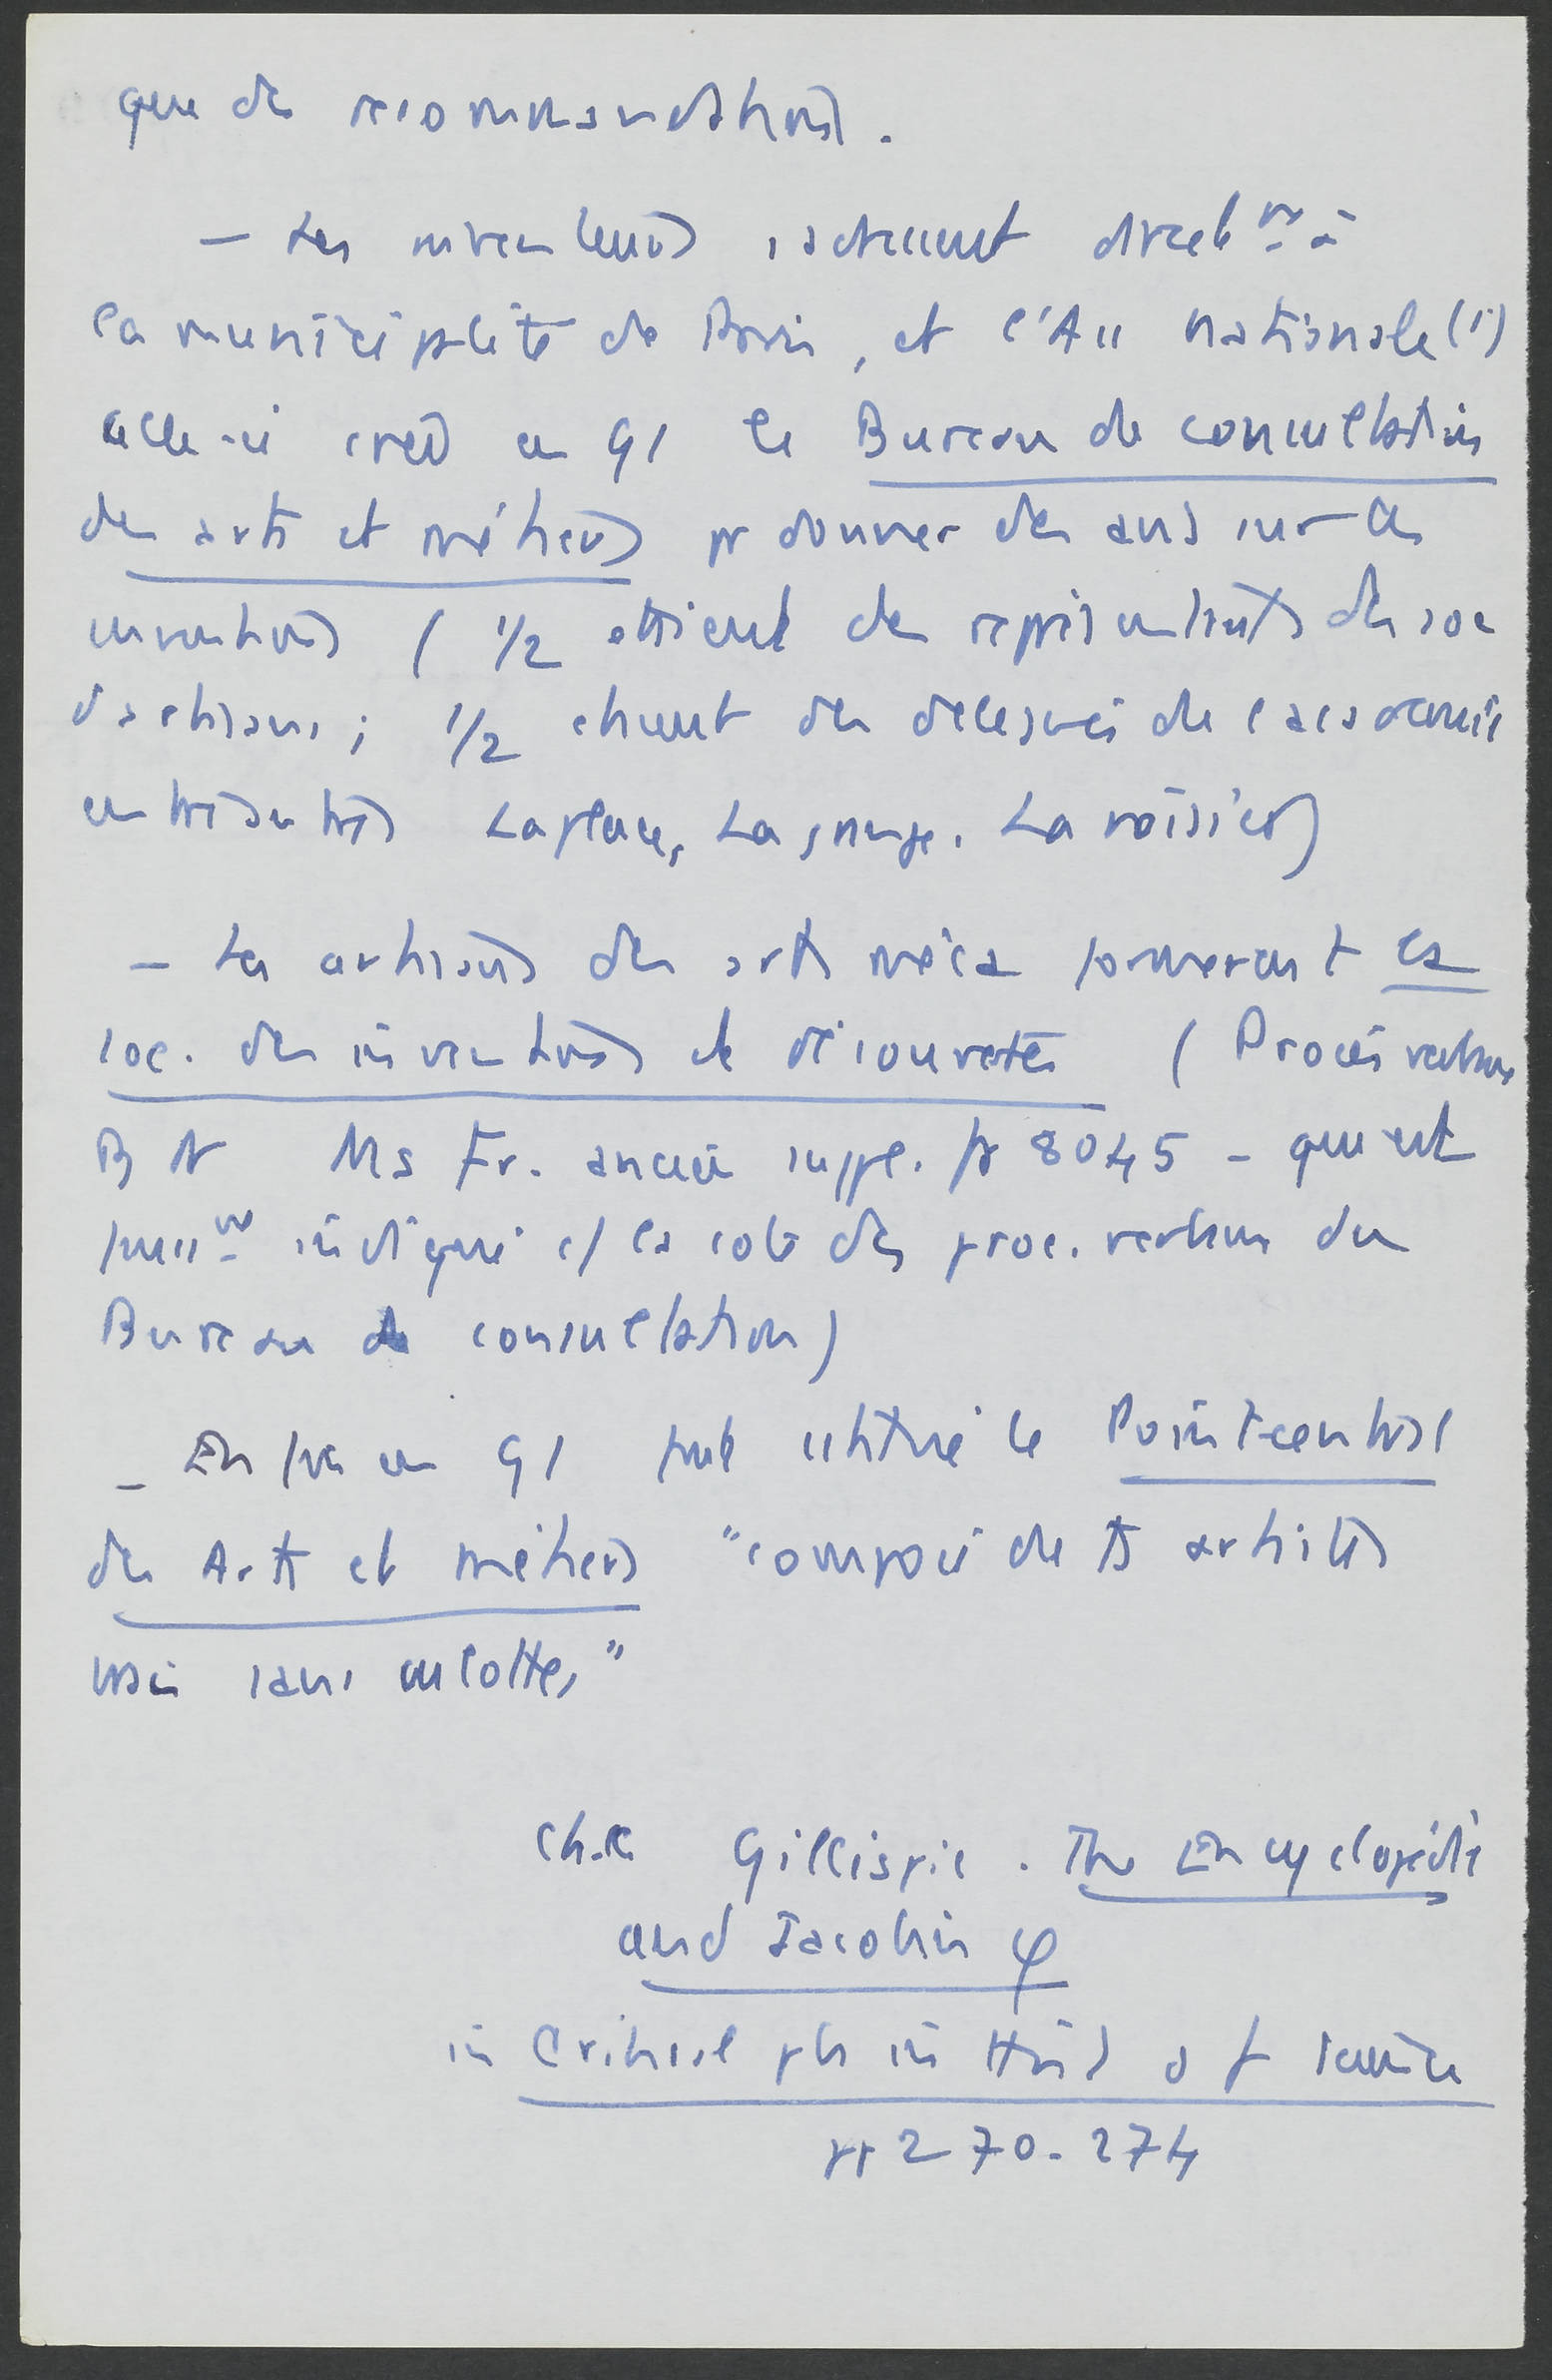 que des recommandations.
– Les inventeurs s'adressent directmt à
la municipalité de Paris, et l'Ass nationale (1)
celle-ci crée en 91 le Bureau de consultation
des arts et métiers pr donner des avis sur les
inventions (1/2 étaient des représentants des soc
d'artisans ; 1/2 étaient des délégués de l'académie
Laplace, Lagrange, Lavoisier)
– Les artisans des arts méca formèrent la
soc. des inventions et découvertes (Procès verbaux
B N Ms Fr. ancien suppl. fr 8045 – qui est
faussmt indiqué c/ la cote des proc. verbaux du
Bureau de consultation)
– Enfin en 91 fut institué le Point central
des Arts et métiers "composé de ts artistes
vrais sans culottes"
Ch.C. Gillispie. The Encyclopédie
and Jacobin φ
in Critical pb in Hist of science
pp 270-274